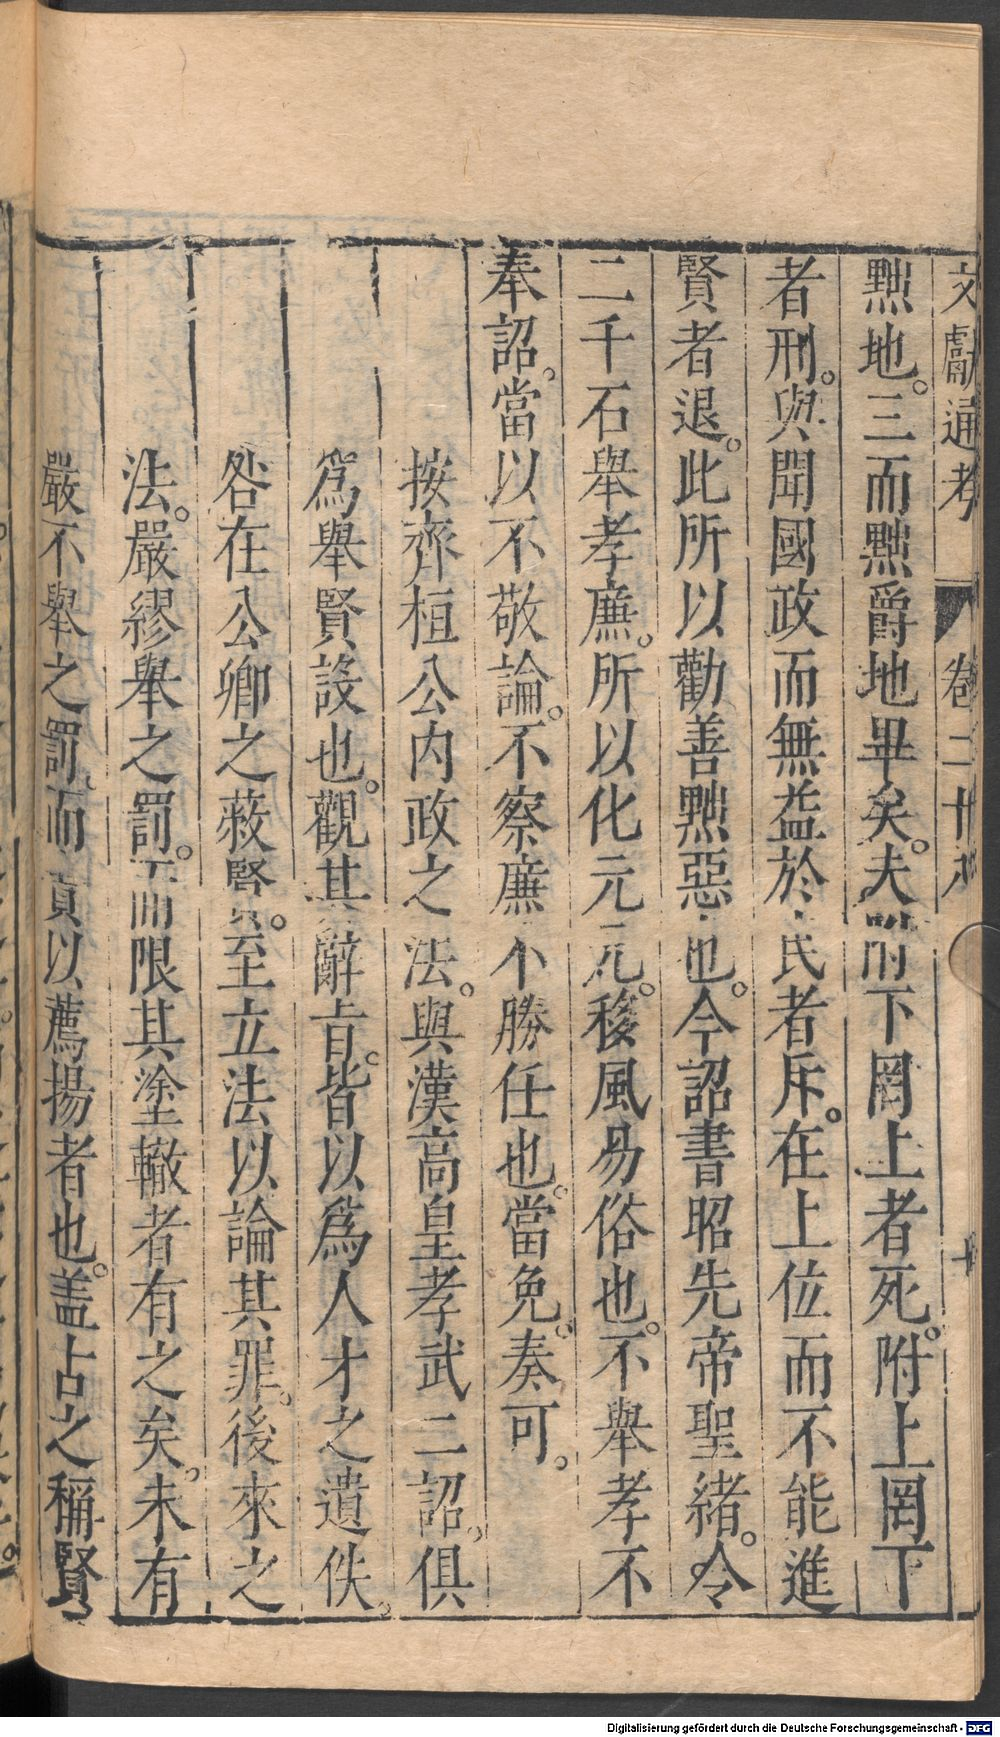 文獻通考 卷二十八 十
黜地。三而黜爵地畢矣。夫附下罔上者死。附上罔下
者刑。與聞國政而無益於民者斥。在上位而不能進
賢者退。此所以勸善黜惡也。今詔書昭先帝聖緒。令
二千石舉孝廉。所以化元元。移風易俗也。不舉孝不
奉詔。當以不敬論。不察廉不勝任也。當免。奏可。
按齊桓公內政之法。與漢高皇孝武二詔。俱
爲舉賢設也。觀其辭旨。皆以爲人才之遺佚。
咎在公卿之蔽賢。至立法以論其罪。後來之
法。嚴繆舉之罰。而限其塗轍者有之矣。未有
嚴不舉之罰。而責以薦揚者也。盖古之稱賢
Digitalisierung gefördert durch die Deutsche Forschungsgemeinschaft - DFG